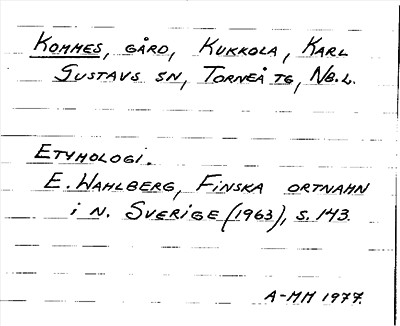 KOMMES, GÅRD, KUKKOLA, KARL
GUSTAVS SN, TORNEÅ TG, NB.L.
ETYMOLOGI.
E. WAHLBERG, FINSKA ORTNAMN
i N. SVERIGE (1963), S. 143.
A-MM 1977.